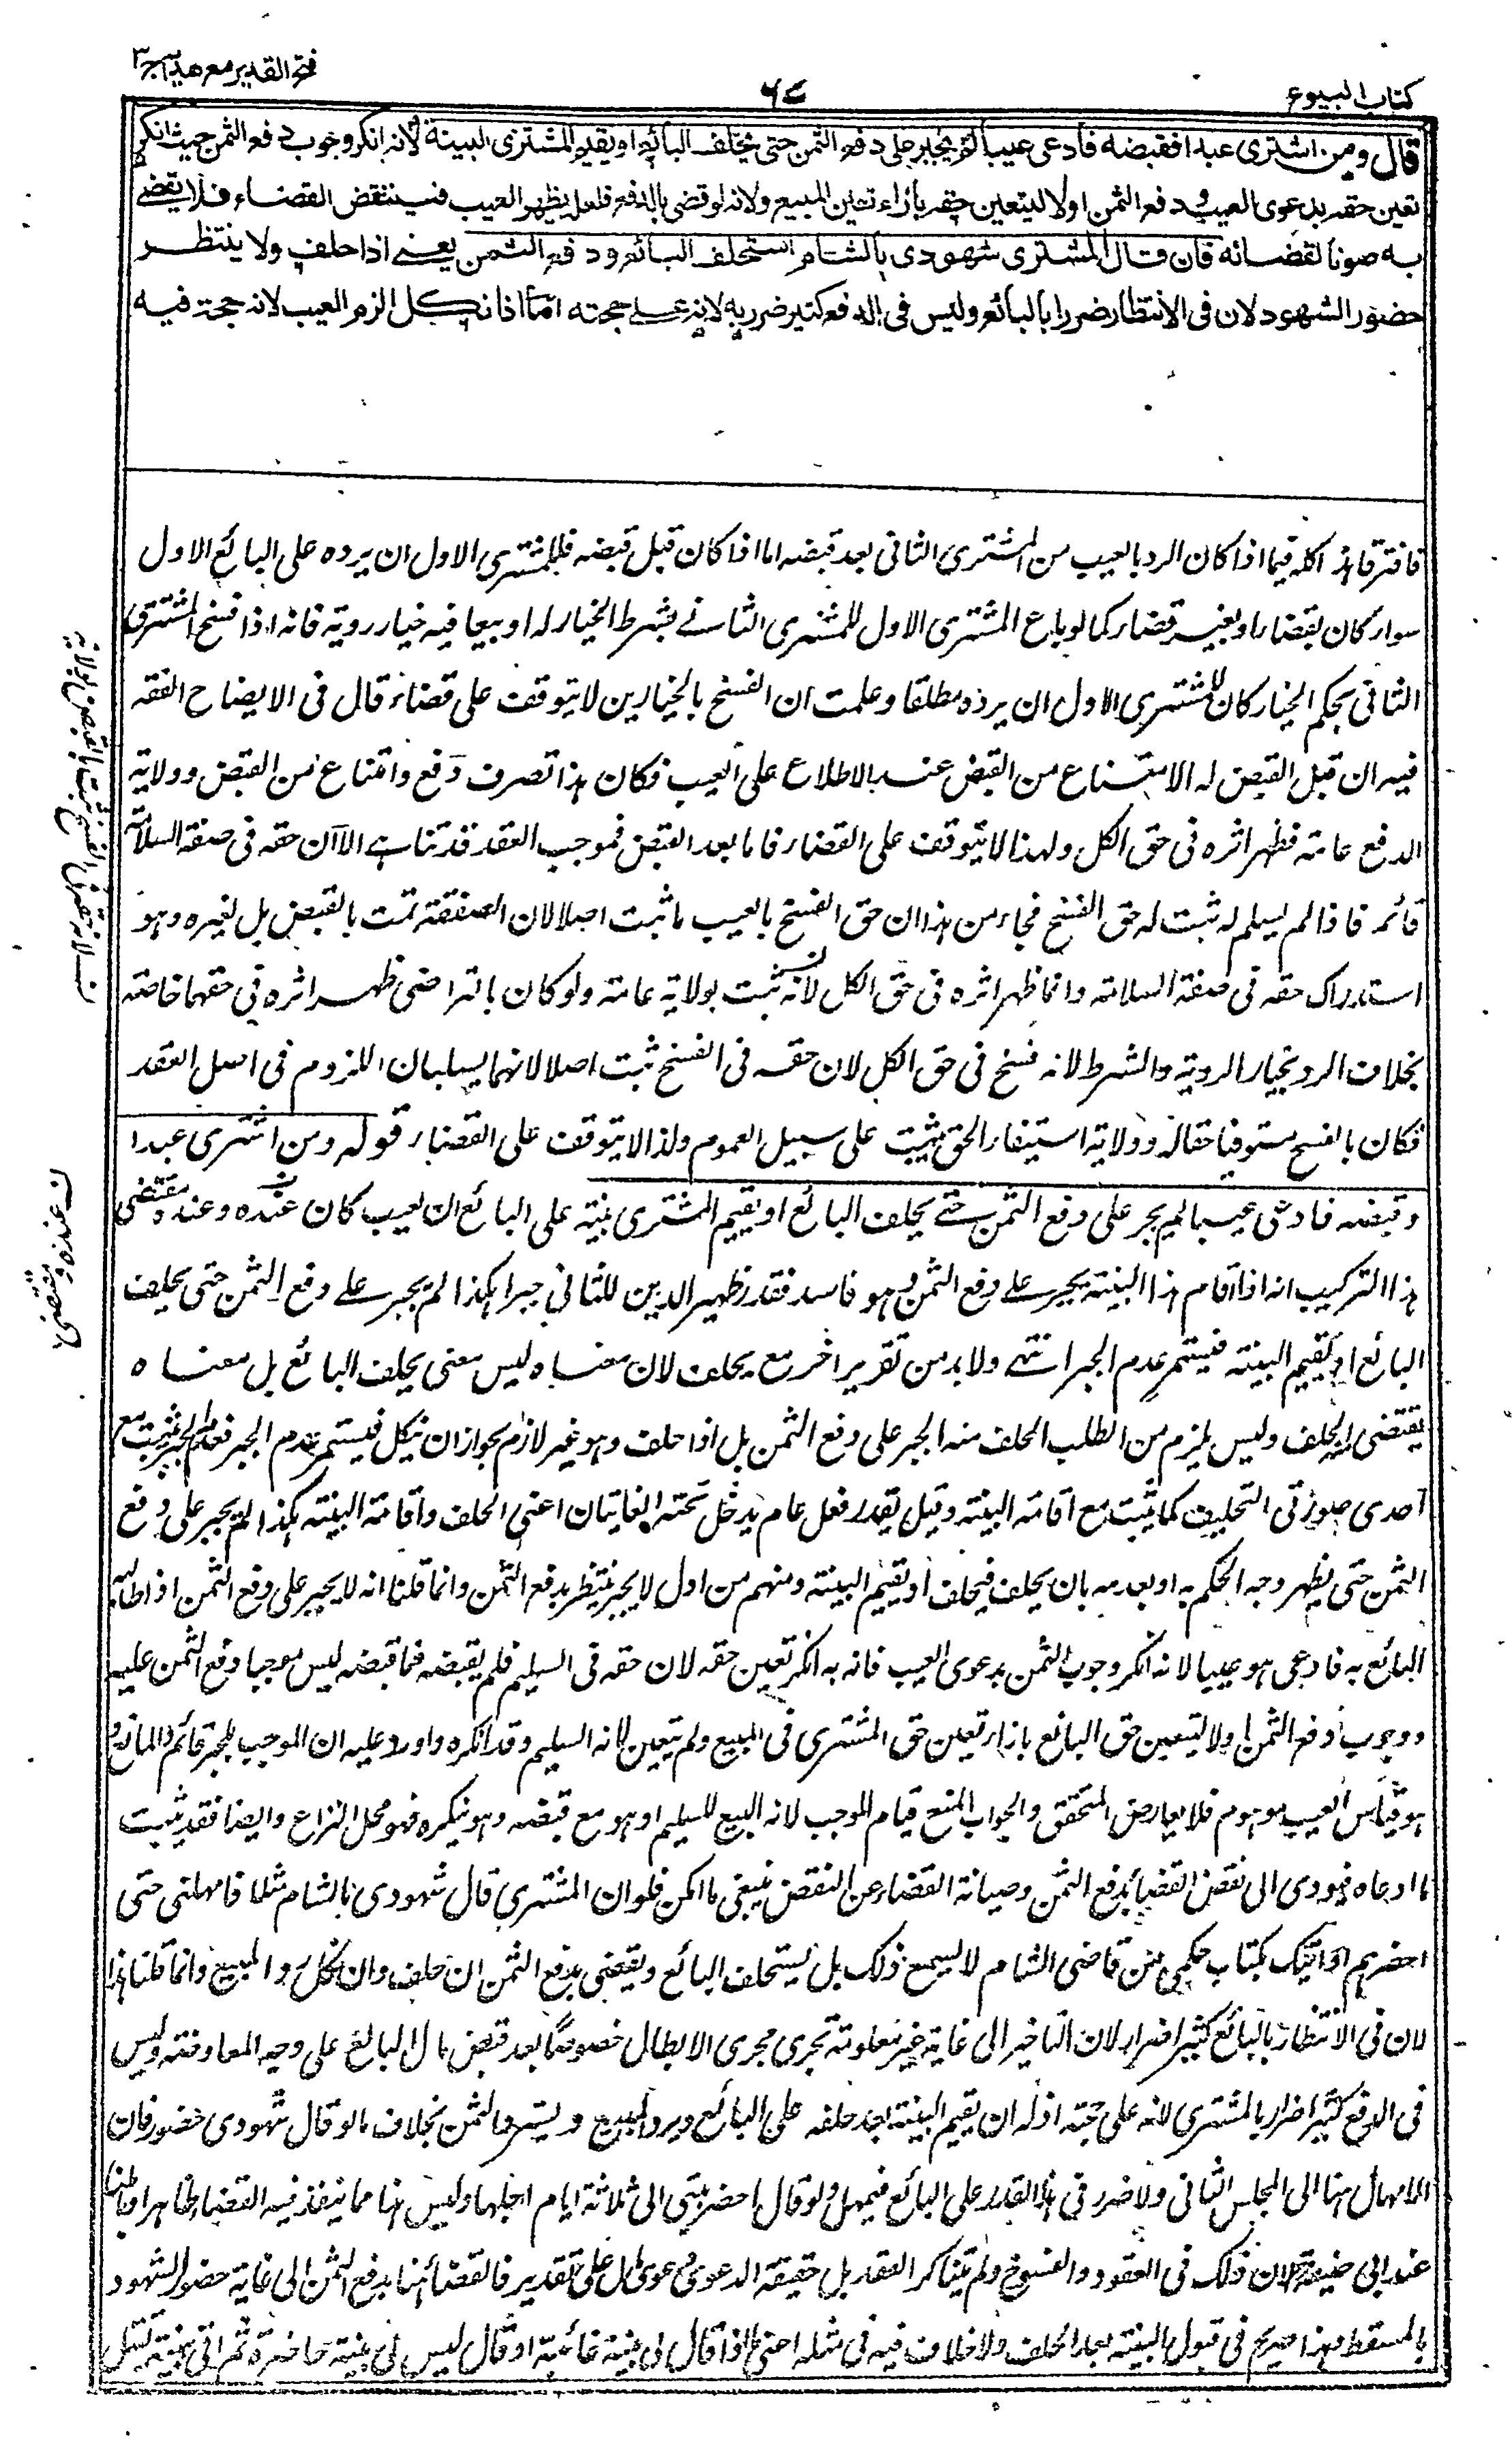 فتح القدير مع هدايه ج ٣
٦٤
كتاب البيوع
قال ومن اشترى عبدا فقبضه فادعى عيبا لم يجبر على دفع الثمن حتى يحلف البائع او يقيم المشترى البينة لانه انكر وجوب دفع الثمن حيث انكر
تعين حقه بدعوى العيب ودفع الثمن اولا ليتعين حقه بازاء تعين المبيع ولانه لو قضى بالدفع فلعله يظهر العيب فينتقض القضاء فلا يقضى
به صونا لقضائه فان قال المشترى شهودى بالشام استحلف البائع ودفع الثمن يعنى اذا حلف ولا ينتظر
حضور الشهود لان فى الانتظار ضررا بالبائع وليس فى الدفع كثير ضرر به لانه على حجته اما اذا نكل الزم العيب لانه حجة فيه
فافترقا هذا كله فيما اذا كان الرد بالعيب من المشترى الثانى بعد قبضه اما اذا كان قبل قبضه فللمشترى الاول ان يرده على البائع الاول
سواء كان بقضاء او بغير قضاء كما لو باع المشترى الاول للمشترى الثانى بشرط الخيار له او بيعا فيه خيار روية فانه اذا فسخ المشترى
الثانى بحكم الخيار كان للمشترى الاول ان يرده مطلقا وعلمت ان الفسخ بالخيارين لا يتوقف على قضاء قال فى الايضاح الفقه
فيه ان قبل القبض له الامتناع من القبض عند الاطلاع على العيب فكان هذا تصرف دفع وامتناع من القبض وولاية
الدفع عامة فظهر اثره فى حق الكل ولهذا لا يتوقف على القضاء فاما بعد القبض فموجب العقد قد تناهى الا ان حقه فى صفة السلامة
قائم فاذا لم يسلم له ثبت له حق الفسخ فجاء من هذا ان حق الفسخ بالعيب ما ثبت اصلا لان الصفقة تمت بالقبض بل لغيره وهو
استدراك حقه فى صفة السلامة وانما ظهر اثره فى حق الكل لانه ثبت بولاية عامة ولو كان بالتراضى ظهر اثره فى حقهما خاصة
بخلاف الرد بخيار الروية والشرط لانه فسخ فى حق الكل لان حقه فى الفسخ ثبت اصلا لانهما يسلبان اللزوم فى اصل العقد
فكان بالفسخ مستوفيا حقا له وولاية استيفاء الحق يثبت على سبيل العموم ولذا لا يتوقف على القضاء قوله ومن اشترى عبدا
وقبضه فادعى عيبا لم يجبر على دفع الثمن حتى يحلف البائع او يقيم المشترى بينة على البائع ان العيب كان عنده وعنده مقتضى
هذا التركيب انه اذا اقام هذا البينة يجبر على دفع الثمن وهو فاسد فقدر ظهير الدين للثانى جبرا هكذا لم يجبر على دفع الثمن حتى يحلف
البائع او يقيم البينة فيستمر عدم الجبر انتهى ولا بد من تقرير اخر مع يحلف لان معناه ليس معنى يحلف البائع بل معناه
يقتضى الحلف وليس يلزم من الطلب الحلف منه الجبر على دفع الثمن بل اذا حلف وهو غير لازم لجواز ان ينكل فيستمر عدم الجبر فعدم الجبر يثبت مع
احدى صورتى التحليف كما يثبت مع اقامة البينة وقيل يقدر فعل عام يدخل تحته الغايتان اعنى الحلف واقامة البينة هكذا لم يجبر على دفع
الثمن حتى يظهر وجه الحكم به او بعدمه بان يحلف فيحلف او يقيم البينة ومنهم من اول لا يجبر ينتظر بدفع الثمن وانما قلنا انه لا يجبر على دفع الثمن اذا طالبه
البائع به فادعى هو عيبا لانه انكر وجوب الثمن بدعوى العيب فانه به انكر تعين حقه لان حقه فى السليم فلم يقبضه فما قبضه ليس موجبا دفع الثمن عليه
ووجوب دفع الثمن اولا ليتعين حق البائع بازاء تعين حق المشترى فى المبيع ولم يتعين لانه السليم وقد انكره واورد عليه ان الموجب للجبر قائم والمانع و
هو قيام العيب موهوم فلا يعارض المتحقق والجواب المنع قيام الموجب لانه البيع للسليم او هو مع قبضه وهو ينكره فهو محل النزاع وايضا فقد يثبت
ما ادعاه فيودى الى نقض القضاء بدفع الثمن وصيانة القضاء عن النقض ينبغى ما امكن فلو ان المشترى قال شهودى بالشام مثلا فامهلنى حتى
احضرهم او اتيك بكتاب حكمى من قاضى الشام لا يسمع ذلك بل يستحلف البائع ويقضى بدفع الثمن ان حلف وان نكل رد المبيع وانما قلنا هذا
لان فى الانتظار بالبائع كثير اضرار لان التاخير الى غاية غير معلومة تجرى مجرى الابطال خصوصا بعد قبض مال البائع على وجه المعاوضة وليس
فى الدفع كثير اضرار بالمشترى لانه على حجته اذ له ان يقيم البينة بعد حلفه على البائع ويرد المبيع ويسترد الثمن بخلاف ما لو قال شهودى حضور فان
الامهال هنا الى المجلس الثانى ولا ضرر فى هذا القدر على البائع فيمهل ولو قال احضر بينتى الى ثلاثة ايام اجلها وليس هنا مما ينفذ فيه القضاء ظاهرا وباطنا
عند ابى حنيفة لان ذلك فى العقود والفسوخ ولم يتناكر العقد بل حقيقة الدعوى دعوى مال على تقدير فالقضاء هنا بدفع الثمن الى غاية حضور الشهود
بالمسقط وهذا صريح فى قبول البينة بعد الحلف ولا خلاف فيه فى مثله اعنى اذا قال لى بينة غائبة او قال ليس لى بينة حاضرة ثم اتى ببينة تقبل